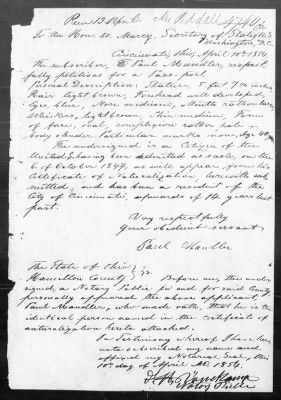 Rec 13 April
To the Hon. W. Marcy, Secretary of State, U.S.
Washington, D.C.
Cincinnati, Ohio, April 10th 1854
The subscriber, Paul Mandler, respect
fully petitions for a Pass-port.
Personal Description: Stature, 5 feet 7 inches,
Hair light brown, Forehead well developed,
Eyes, blue, Nose medium, Mouth rather large,
Whiskers, light brown, Chin medium, Form
of face, oval, complexion rather pale,
body slender Particular marks none, Age 40
The undersigned is a Citizen of the
United States, having been admitted as such, on the
6 of October 1847, as will appear from his
Certificate of Naturalization, herewith sub
mitted, and has been a resident of the
City of Cincinnati, upwards of 14 years last
past.
Very respectfully
Your obedient servant
Paul Mandler
The State of Ohio
Hamilton County ss. Before me, the under
signed, a Notary Public in and for said County
personally appeared the above applicant,
Paul Mandler, who made oath, that he is the
identical person named in the certificate of
naturalization hereto attached.
In Testimony whereof I have here
unto subscribed my name and
affixed my Notarial Seal, this
10th day of April A.D. 1854.
Notary Public